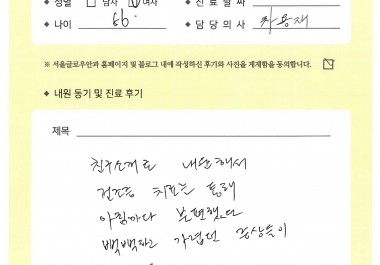 • 성별 □ 남자 ☑ 여자 • 진료날짜
• 나이 66. • 담당의사 곽용재
※ 서울글로우안과 홈페이지 및 블로그 내에 작성하신 후기와 사진을 게재함을 동의합니다. ☑
• 내원 동기 및 진료 후기
제목
친구소개로 내원해서
건조증 치료는 통해
아침마다 불편했고
뻑뻑하고 가렵던 증상들이